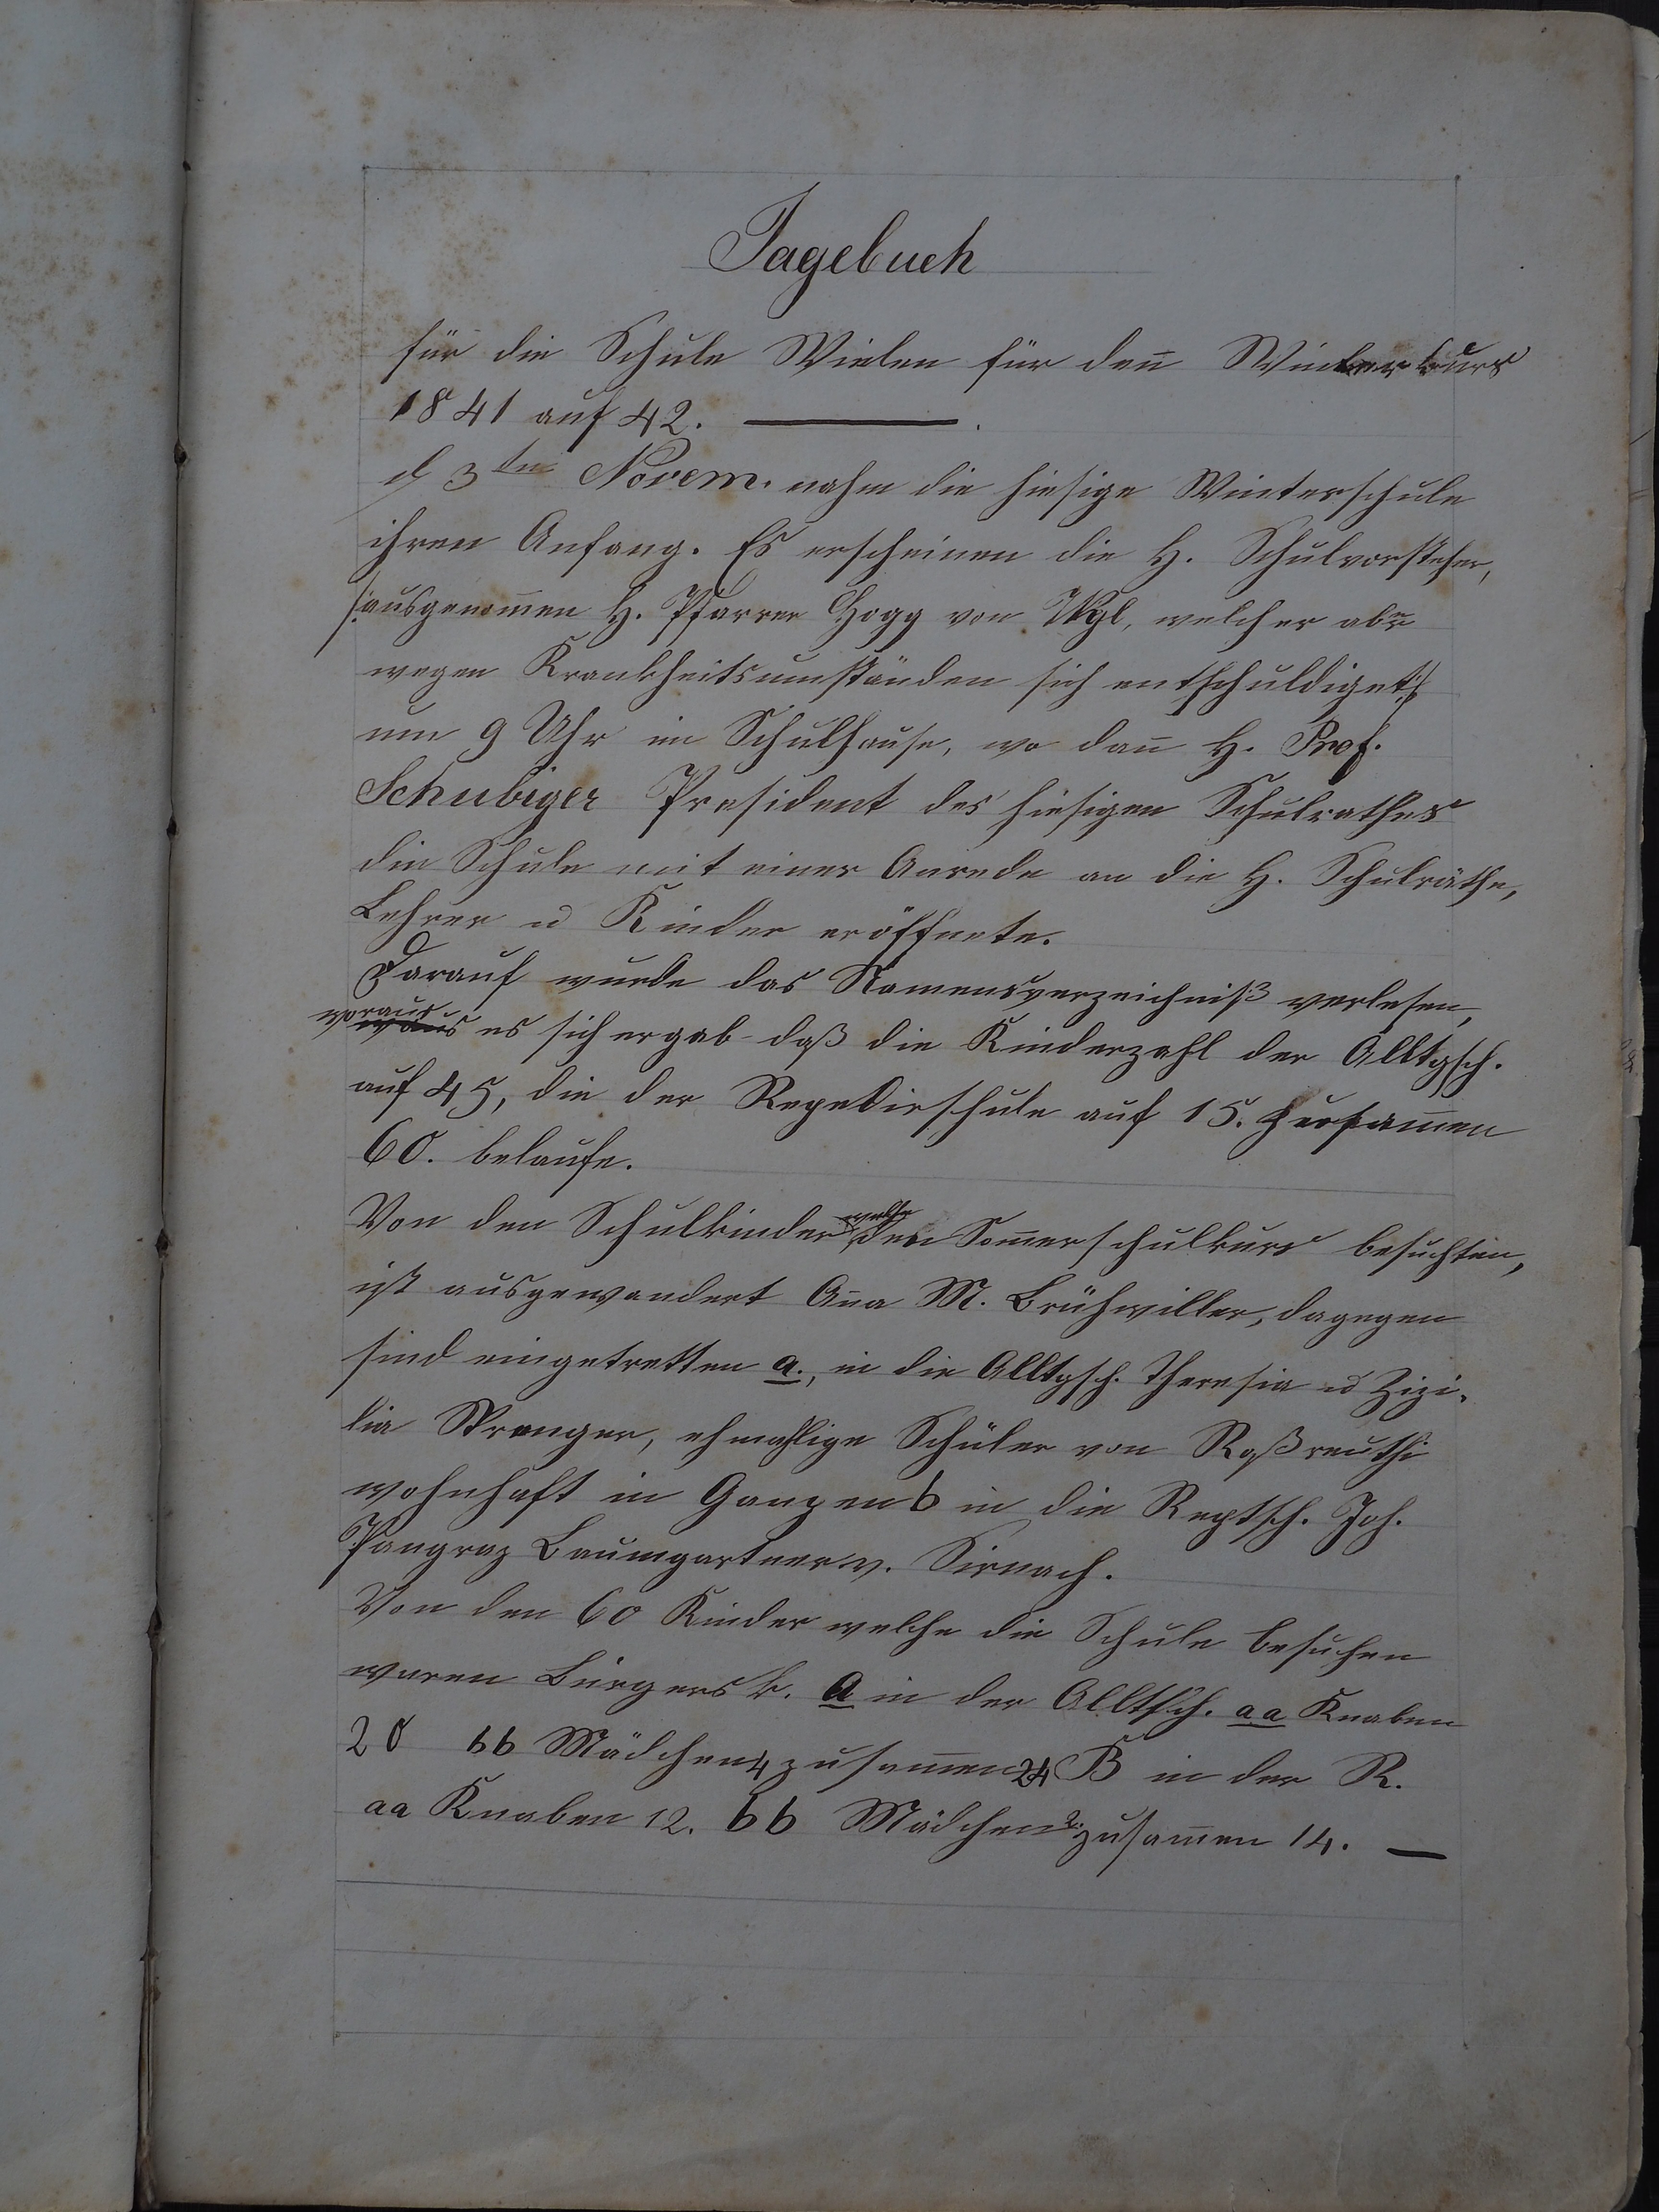 Tagebuch
für die Schule Wielen für den̅ Winterkurs
1841 auf 42. ———.
d 3ten Novem. nahm die hiesige Winterschule
ihren Anfang. Es erscheinen die H. Schulvorsteher,
/:ausgenom̅en H. Pfarrer Gogg von Wgl, welcher aber
wegen Krankheitsumständen sich entschuldiget:/
um 9 Uhr im Schulhause, wo dan̅ H. Prof.
Schubiger President des hiesigen Schulrathes
die Schule mit einer Anrede an die H. Schulräthe,
Lehrer u Kinder eröffnete.
Darauf wurde das Namensverzeichniß verlesen,
woraus es sich ergab daß die Kinderzahl der Alltgsch.
auf 45, die der Repetirschule auf 15. zusam̅en
60. belaufe.
Von den Schulkinder welche den Som̅erschulkurs besuchten,
ist ausgewandert An̅a M. Brühwiller, dagegen
sind eingetretten a., in die Alltgsch. Theresia u Zizi-
lia Strenger, ehmahlige Schüler von Roßreuthi
wohnhaft in Ganzen b in die Reptsch. Joh.
Pangraz Baumgartner v. Sirnach.
Von den 60 Kinder welche die Schule besuchen
waren Bürgersk. a in der Alltsch. aa Knaben
20 bb Mädchen 4 zusam̅en 24 B in der R.
aa Knaben 12. bb Mädchen 2. zusam̅en 14. —